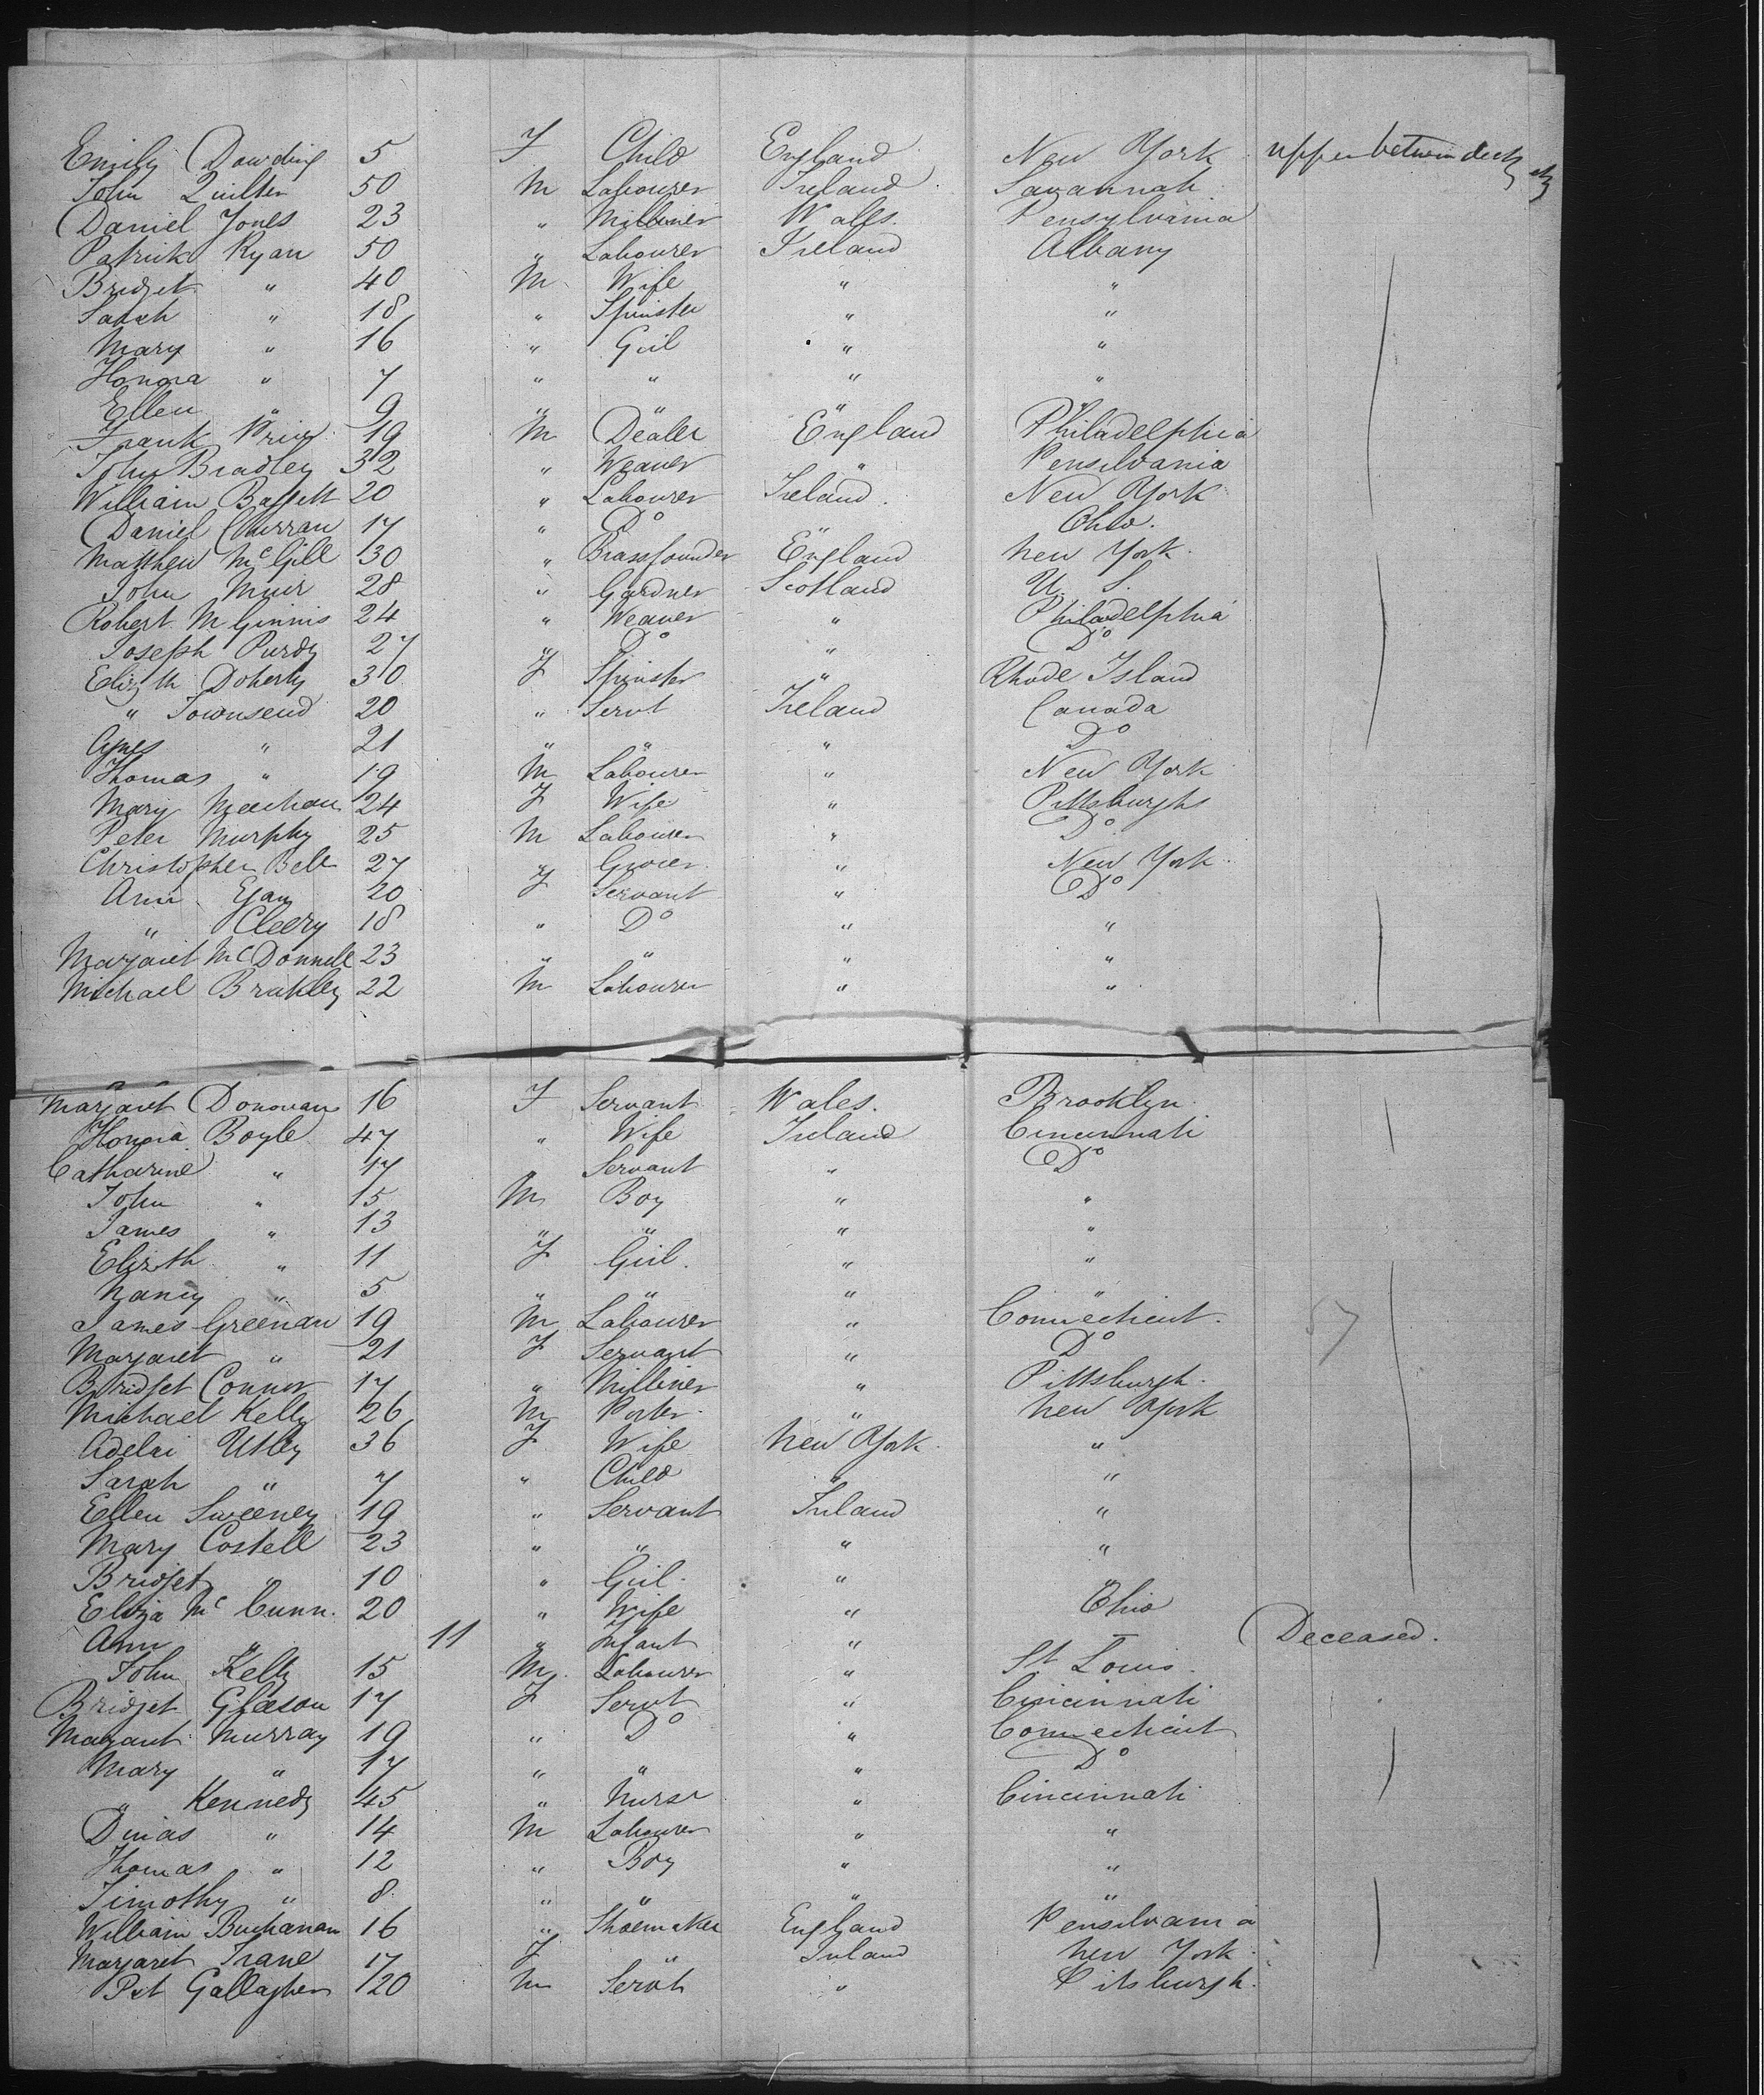 Emily Dowding 5 F Child England New York upper between decks
John Quilter 50 M Labourer Ireland Savannah
Daniel Jones 23 " Milliner Wales Pensylvania
Patrick Ryan 50 " Labourer Ireland Albany
Bridget " 40 M Wife " "
Sarah " 18 " Spinster " "
Mary " 16 " Girl " "
Honora " 7 " " " "
Ellen " 9 " " " "
Frank Price 19 M Dealer England Philadelphia
John Bradley 32 " Weaver " Pensilvania
William Bassett 20 " Labourer Ireland New York
Daniel Curran 17 " Do Ohio
Matthew McGill 30 " Brassfounder England New York
John Muir 28 " Gardner Scotland U. S.
Robert McGinnis 24 " Weaver " Philadelphia
Joseph Purdy 27 " Do " Do
Elizth Doherty 30 F Spinster " Rhode Island
" Townsend 20 " Servt Ireland Canada
Agnes " 21 " " " Do
Thomas " 19 M Labourer " New York
Mary Meehan 24 F Wife " Pittsburghs
Peter Murphy 25 M Labourer " Do
Christopher Bell 27 " Grocer " New York
Ann Egan 20 F Servant " Do
" Cleery 18 " Do " "
Margaret McDonnell 23 " " " "
Michael Brakley 22 M Labourer " "
Margaret Donovan 16 F Servant Wales Brooklyn
Honora Boyle 47 " Wife Ireland Cincinnati
Catharine " 17 " Servant " Do
John " 15 M Boy " "
James " 13 " " " "
Elizth " 11 F Girl " "
Nancy " 5 " " " "
James Greenan 19 M Labourer " Connecticut
Margaret " 21 F Servant " Do
Bridget Connor 17 " Milliner " Pittsburgh
Michael Kelly 26 M Porter " New York
Utley 36 F Wife New York "
Sarah " 7 " Child " "
Ellen Sweeney 19 " Servant Ireland "
Mary Costell 23 " " " "
Bridget " 10 " Girl " "
Eliza McCunn 20 " Wife " Ohio
Ann " 11 " Infant " " Deceased.
John Kelly 15 M Labourer " St Louis
Bridget Gleeson 17 F Servt " Cincinnati
Margaret Murray 19 " Do " Connecticut
Mary " 17 " " " Do
" Kennedy 45 " Nurse " Cincinnati
14 M Labourer " "
Thomas " 12 " Boy " "
Timothy " 8 " " " "
William Buchanan 16 " Shoemaker England Pensilvania
Margaret 17 F " Ireland New York
Pat Gallagher 20 M Servt " Pitsburgh